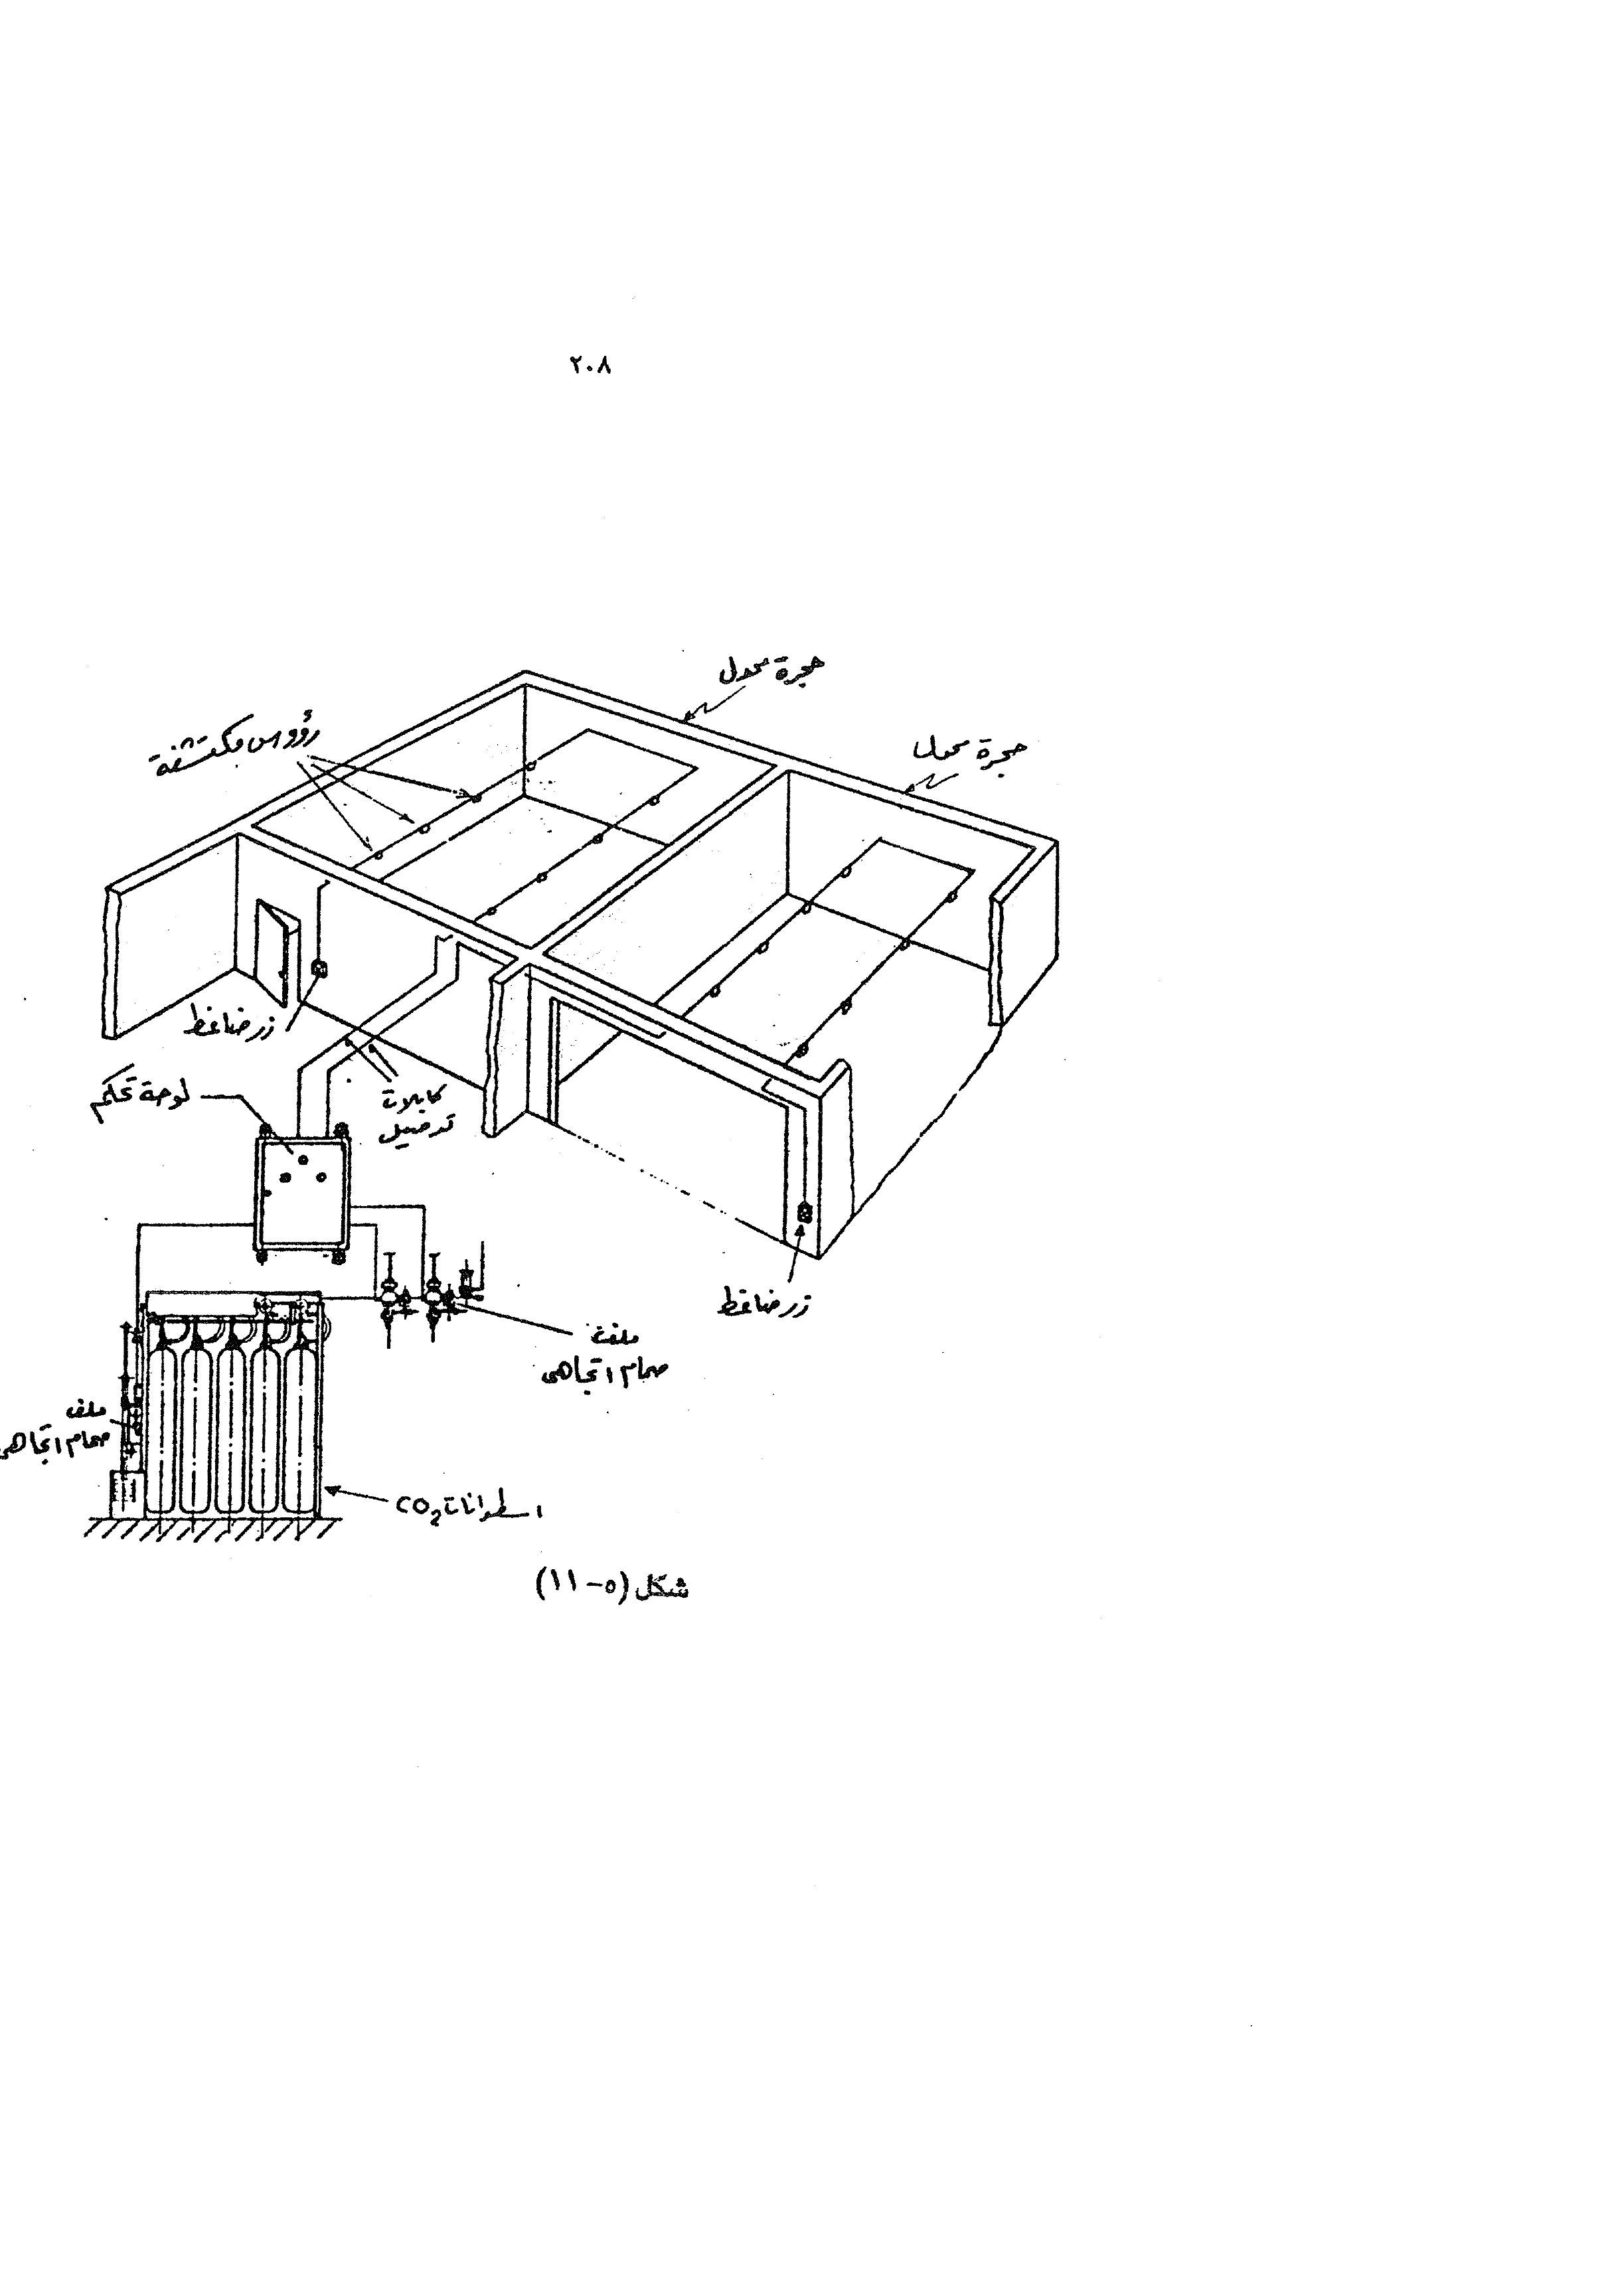 ٢٠٨
حجرة محول
حجرة محول
رؤوس مكتشفة
زر ضاغط
كابلات
توصيل
لوحة تحكم
زر ضاغط
ملف
صمام اتجاهى
ملف
صمام اتجاهى
اسطوانات CO2
شكل (٥-١١)